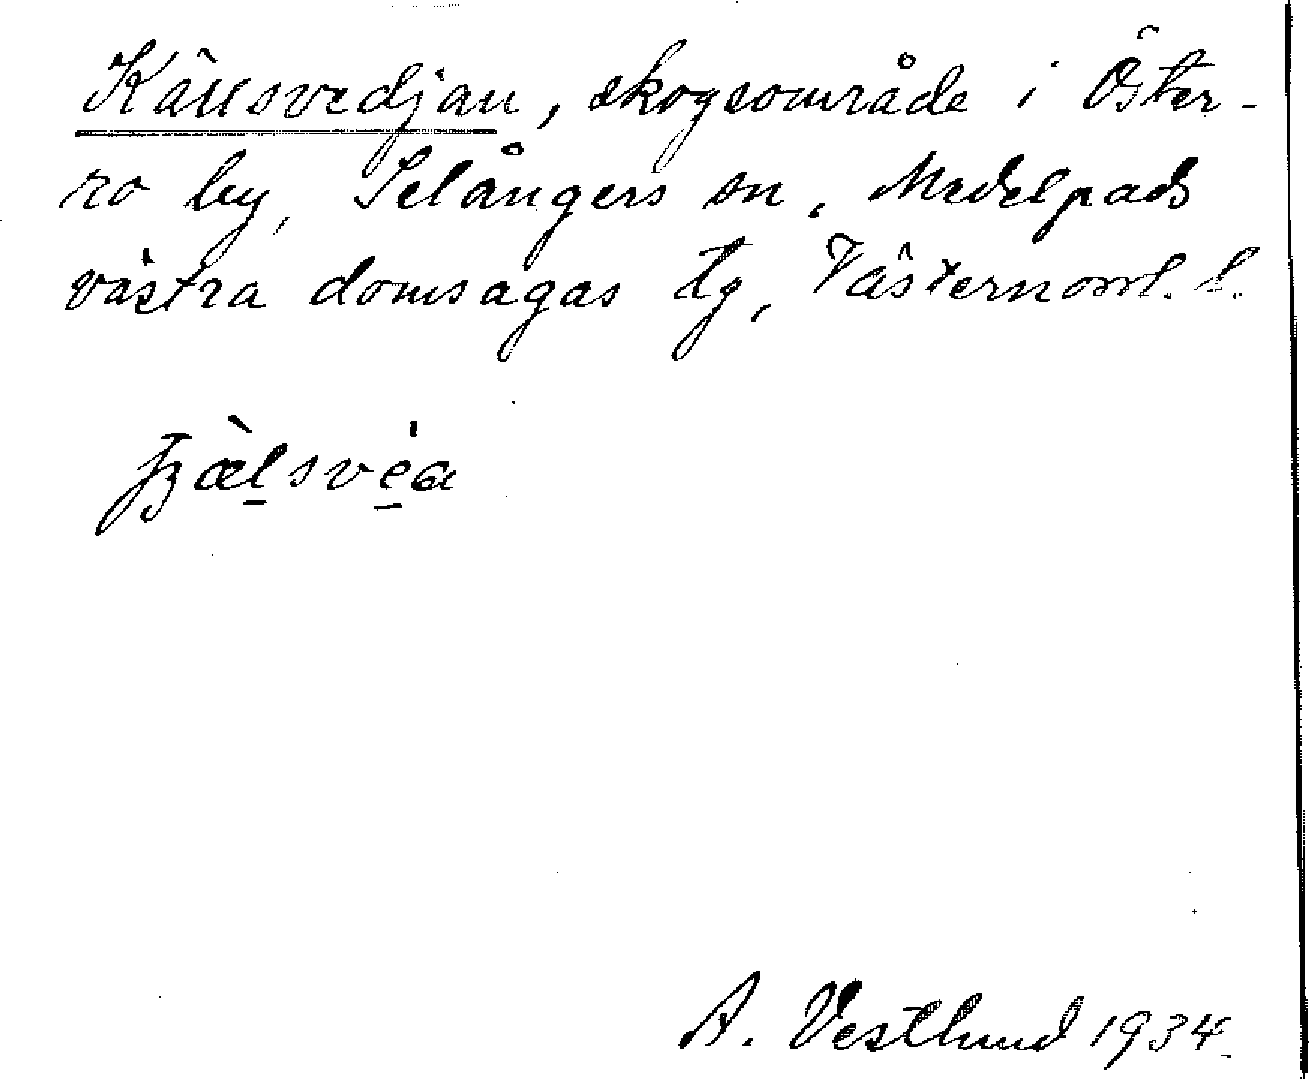 Källsvedjan, skogsområde i Öster-
ro by, Selångers sn, Medelpads
västra domsagas tg, Västernorrl. l.
A. Vestlund 1934.